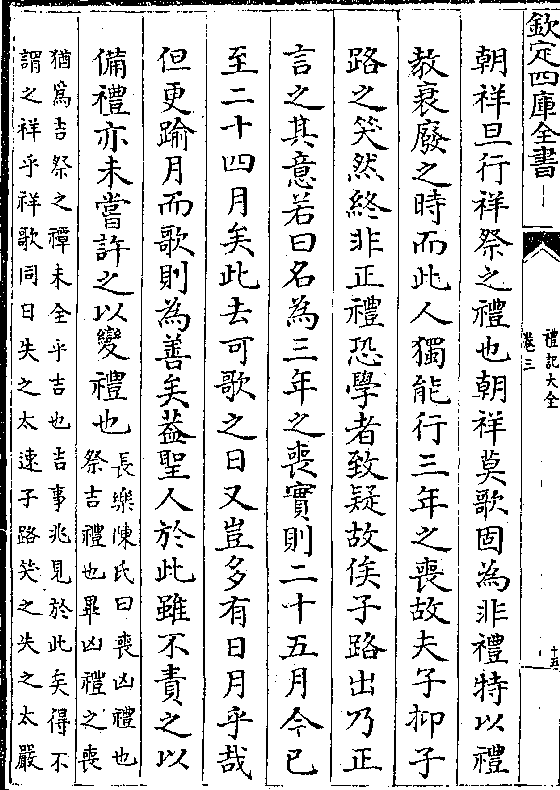 欽定四庫全書
禮記大全
卷三
十五
朝祥旦行祥祭之禮也朝祥莫歌固為非禮特以禮
教衰廢之時而此人獨能行三年之喪故夫子抑子
路之笑然終非正禮恐學者致疑故俟子路出乃正
言之其意若曰名為三年之喪實則二十五月今已
至二十四月矣此去可歌之日又豈多有日月乎哉
但更踰月而歌則為善矣葢聖人於此雖不責之以
備禮亦未嘗許之以變禮也
長樂陳氏曰喪凶禮也
祭吉禮也畢凶禮之喪
猶為吉祭之禫未全乎吉也吉事兆見於此矣得不
謂之祥乎祥歌同日失之太速子路笑之失之太嚴